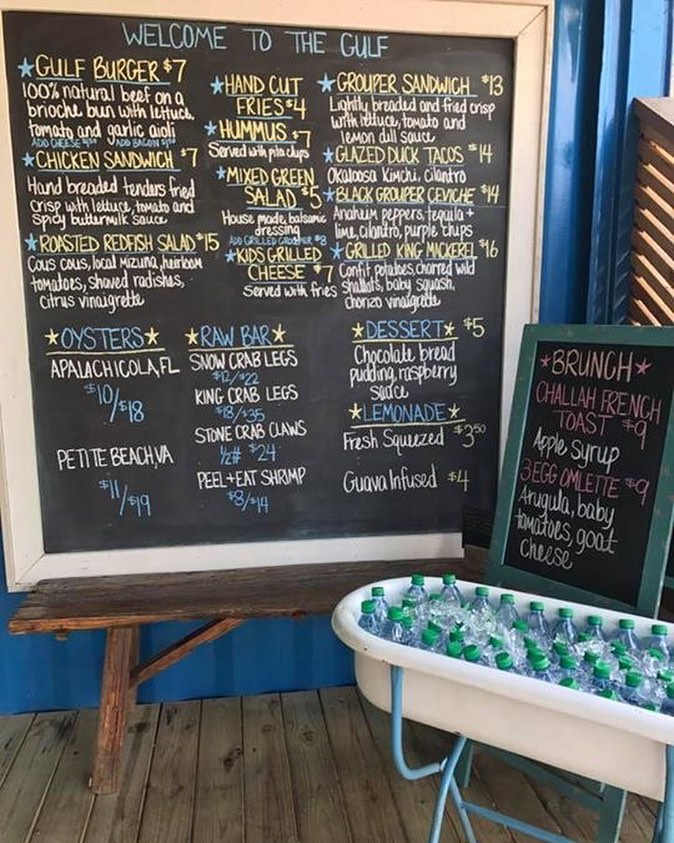 WELCOME TO THE GULF
GULF BURGER $7
100% natural beef on a
brioche bun with lettuce,
tomato and garlic aioli
ADD CHEESE ADD BACON
CHICKEN SANDWICH $7
Hand breaded tenders fried
crisp with lettuce, tomato and
spicy buttermilk sauce
ROASTED REDFISH SALAD $15
Cous cous, local mizuna, heirloom
tomatoes, shaved radishes,
citrus vinaigrette
HAND CUT
FRIES $4
HUMMUS $7
Served with pita chips
MIXED GREEN
SALAD $5
House made, balsamic
dressing
ADD GRILLED GROUPER $8
KIDS GRILLED
CHEESE $7
Served with fries
GROUPER SANDWICH $13
Lightly breaded and fried crisp
with lettuce, tomato and
lemon dill sauce
GLAZED DUCK TACOS $14
Okaloosa Kimchi, cilantro
BLACK GROUPER CEVICHE $14
Anaheim peppers, tequila +
lime, cilantro, purple chips
GRILLED KING MACKEREL $16
Confit potatoes, charred wild
shallots, baby squash,
chorizo vinaigrette
OYSTERS
APALACHICOLA, FL
$10/$18
PETITE BEACH, VA
$11/$19
RAW BAR
SNOW CRAB LEGS
$12/$22
KING CRAB LEGS
$18/$35
STONE CRAB CLAWS
1/2# $24
PEEL + EAT SHRIMP
$8/$14
DESSERT $5
Chocolate bread
pudding, raspberry
sauce
LEMONADE
Fresh Squeezed $3.50
Guava Infused $4
BRUNCH
CHALLAH FRENCH
TOAST $9
Apple syrup
3 EGG OMLETTE $9
Arugula, baby
tomatoes, goat
cheese